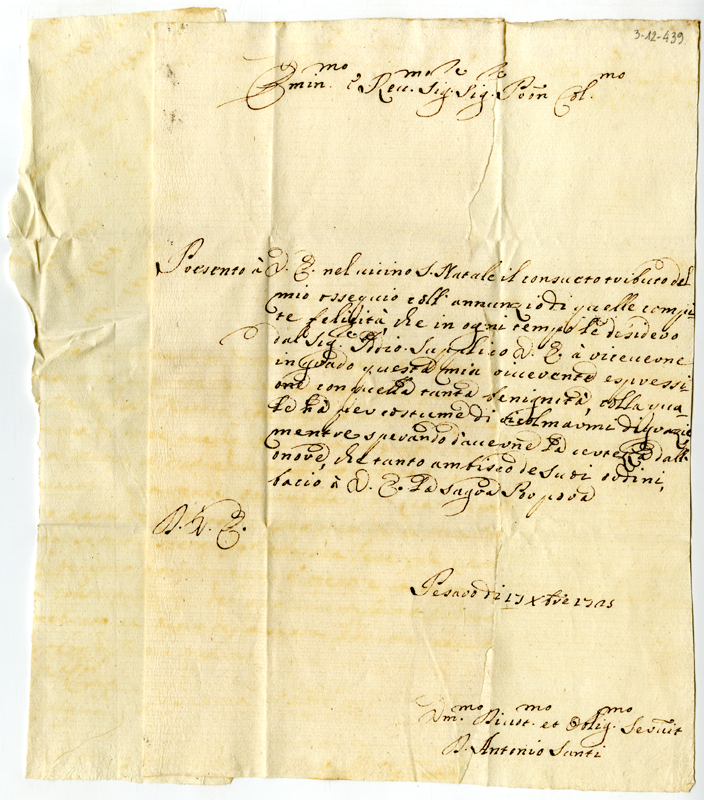 3-12-439
Emin.mo e Reu.mo Sig.re Sig.re Pron Col.mo
Presento à V. E. nel uicino S. Natale il consueto tributo del
mio ossequio coll' annunzio di quelle compi-
te felicità, che in ogni tempo le desidero
dal Sig.re Iddio. Supplico V. E. à riceuerne
in grado questa mia riuerente espressi-
one con quella tanta benignità, colla qua-
le hà per costume di colmarmi di grazie
mentre sperando d'auerne la certezza dall'
onore, che tanto ambisco de suoi ordini,
bacio à V. E. la sagra Porpora
D. V. E.
Pesaro di 17 Xbre 1725
Vm.mo Diuot.mo et Oblig.mo Seruit
D. Antonio Santi